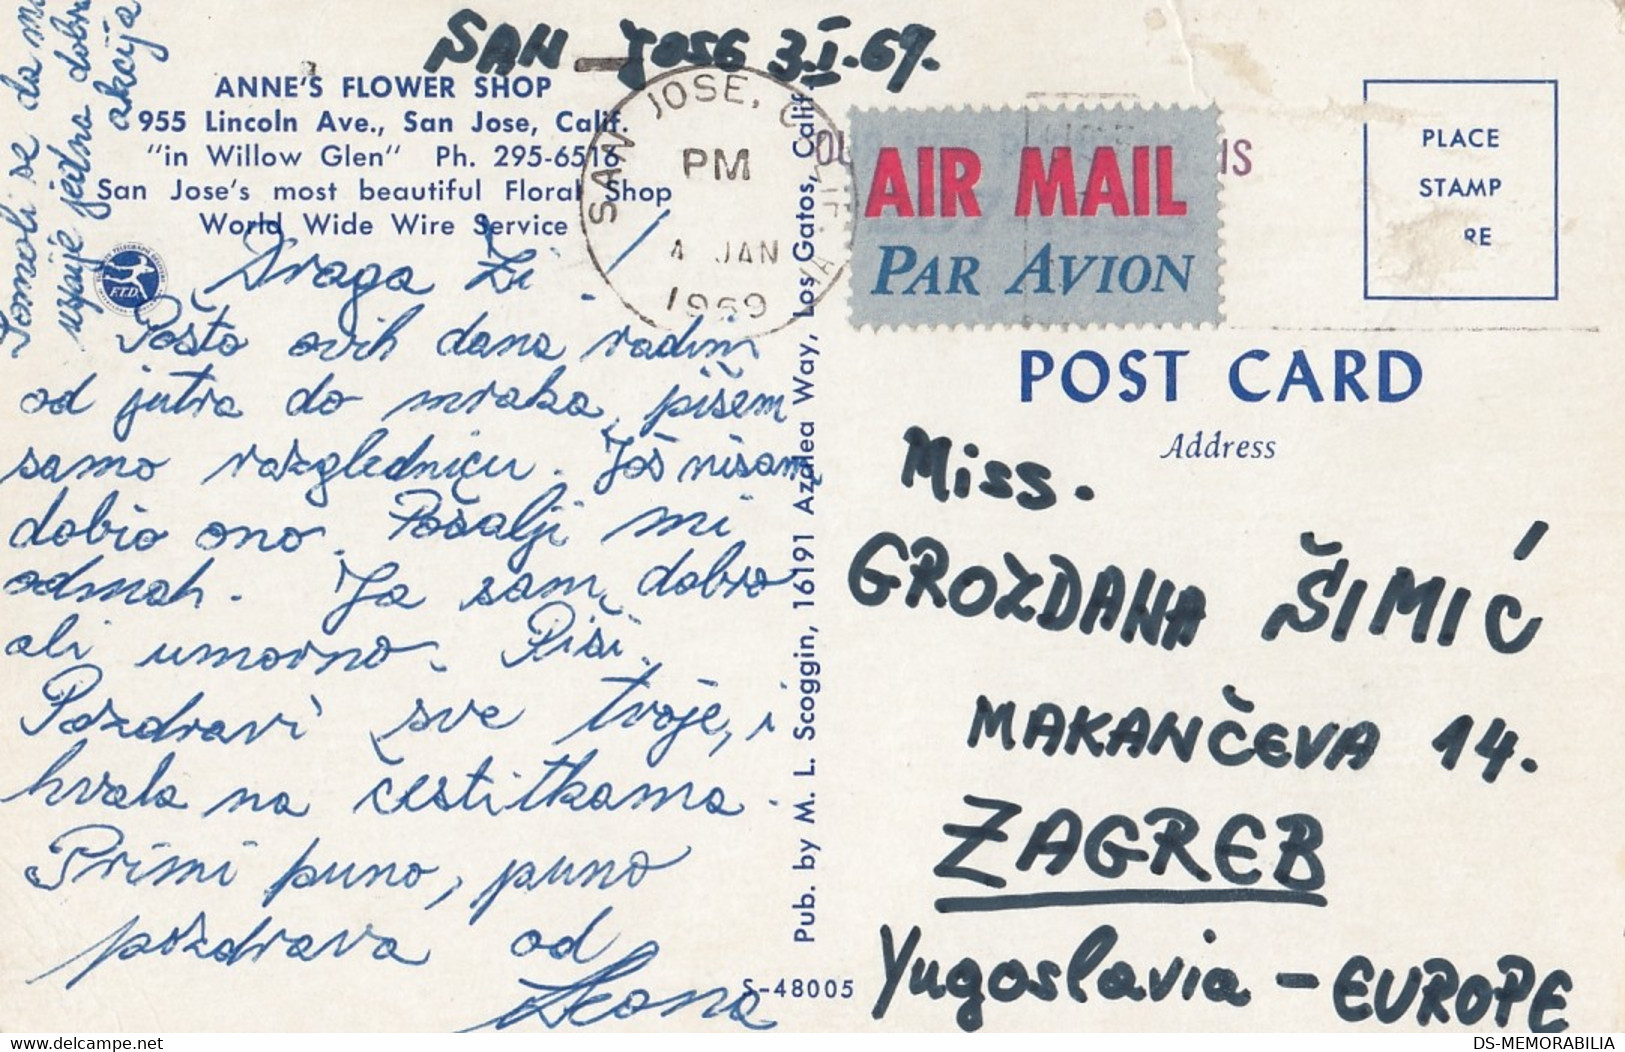 SAN – JOSE 3.I.69.
ANNE'S FLOWER SHOP
955 Lincoln Ave., San Jose, Calif.
"in Willow Glen" Ph. 295-6516
San Jose's most beautiful Floral Shop
World Wide Wire Service
F.T.D.
Draga Ži!
Pošto ovih dana radim
od jutra do mraka, pišem
samo razglednicu. Još nisam
dobio ono. Pošalji mi
odmah. Ja sam dobro
ali umorno. Piši.
Pozdravi sve tvoje, i
hvala na čestitkama.
Primi puno, puno
pozdrava od
Pomoli se da mi
uspije jedna dobra
akcija
Pub. by M. L. Scoggin, 16191 Azalea Way, Los Gatos, Calif.
S-48005
SAN JOSE, CALIF.
PM
4 JAN
1969
AIR MAIL
PAR AVION
PLACE
STAMP
RE
POST CARD
Address
Miss.
GROZDANA ŠIMIĆ
MAKANČEVA 14.
ZAGREB
Yugoslavia – EUROPE
www.delcampe.net
DS-MEMORABILIA